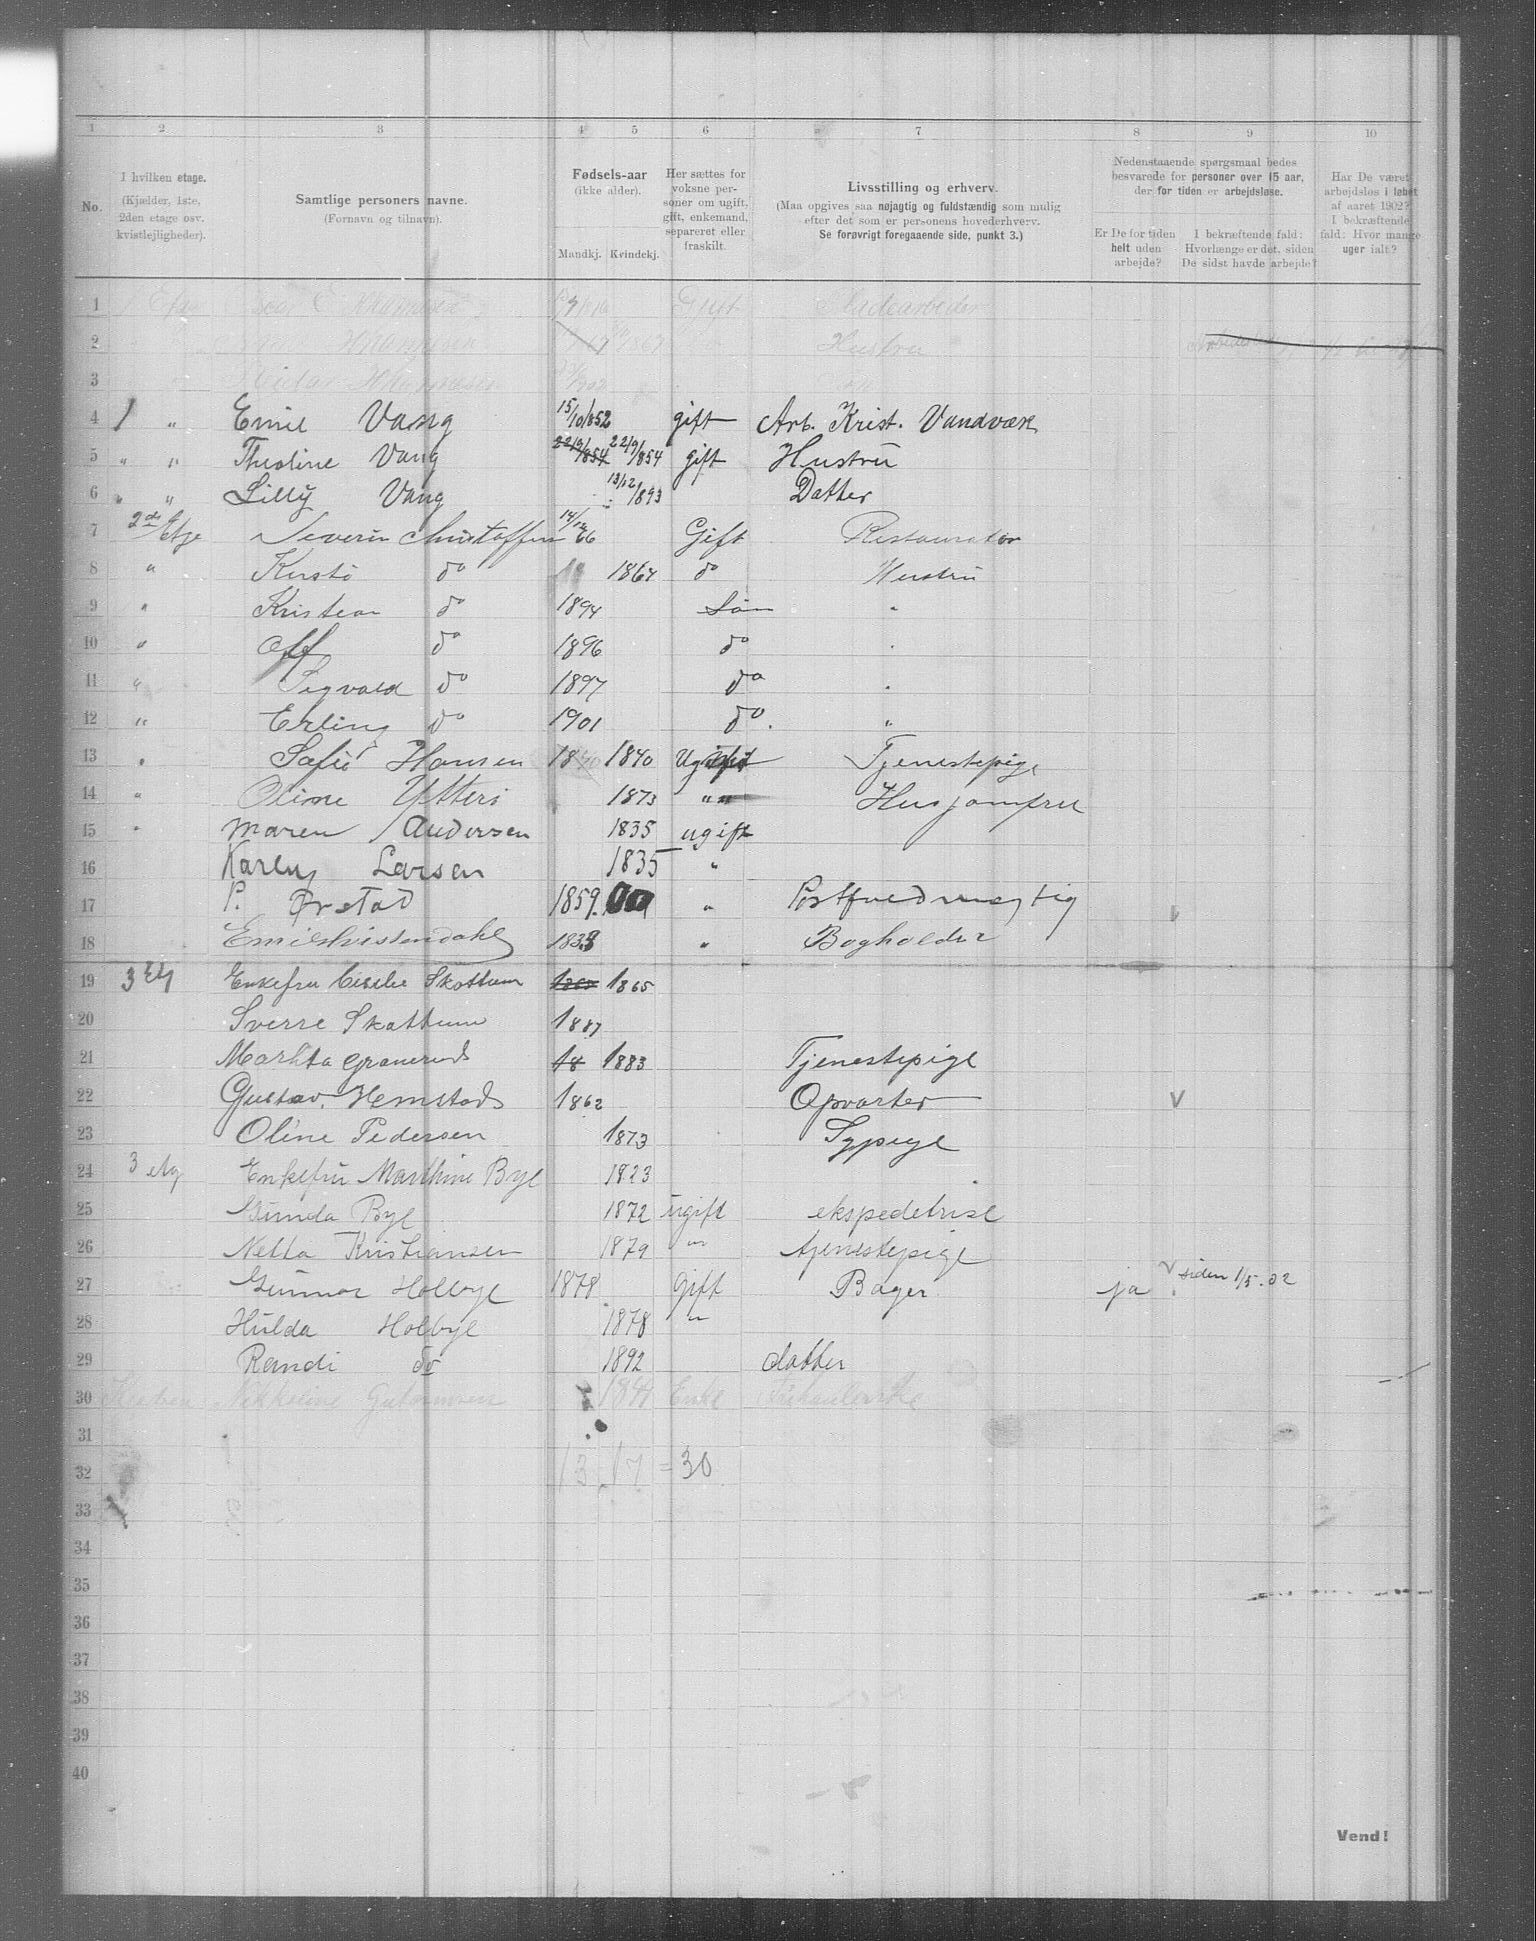 1 2 3 4 5 6 7 8 9 10
No.
I hvilken etage.
(Kjælder, 1ste,
2den etage osv.
kvistlejligheder).
Samtlige personers navne.
(Fornavn og tilnavn).
Fødsels-aar
(ikke alder).
Mandkj. Kvindekj.
Her sættes for
voksne per-
soner om ugift,
gift, enkemand,
separeret eller
fraskilt.
Livsstilling og erhverv.
(Maa opgives saa nøjagtig og fuldstændig som mulig
efter det som er personens hovederhverv.
Se forøvrigt foregaaende side, punkt 3.)
Nedenstaaende spørgsmaal bedes
besvarede for personer over 15 aar,
der for tiden er arbejdsløse.
Er De for tiden
helt uden
arbejde?
I bekræftende fald:
Hvorlænge er det, siden
De sidst havde arbejde?
Har De været
arbejdsløs i løbet
af aaret 1902?
I bekræftende
fald: Hvor mange
uger ialt?
1 Gift
2 Hustru
3
4 1 " Emil Vang 15/10/852 gift Arb. Krist. Vandværk
5 " " Theoline Vang 22/9/854 22/9/854 gift Hustru
6 " " Lilly Vang 13/12/893 Datter
7 2den Etge Severin Christoffersen 14/12 66 Gift Restauratør
8 " do 1864 do Hustru
9 " Kristian do 1894 Søn "
10 " do 1896 do "
11 " Sigvald do 1897 do "
12 " Erling do 1901 do. "
13 " Sofie Hansen 1840 1840 Ugift Tjenestepige
14 " Oline Ytteri 1873 " Husjomfru
15 " Maren Andersen 1835 ugift
16 Karen Larsen 1835 "
17 P. Ørstad 1859. " Postfuldmægtig
18 Emil Hvistendahl 1833 " Bogholder
19 3 Etg Enkefru Cecilie Skattum 1865 1865
20 Sverre Skattum 1887
21 Martha Granerud 18 1883 Tjenestepige
22 Gustav Hemstad 1862 Opvarter V
23 Oline Pedersen 1873 Sypige
24 3 etg Enkefru Marthine Bye 1823
25 Gunda Bye 1872 ugift ekspeditrise
26 Netta Kristiansen 1879 " tjenestepige
27 Gunnar Holbye 1878 Gift Bager ja V siden 1/5.02
28 Hulda Holbye 1878 "
29 Randi do 1892 datter
30 Nikoline Enke
31
32 13 17 = 30
33
34
35
36
37
38
39
40
Vend!